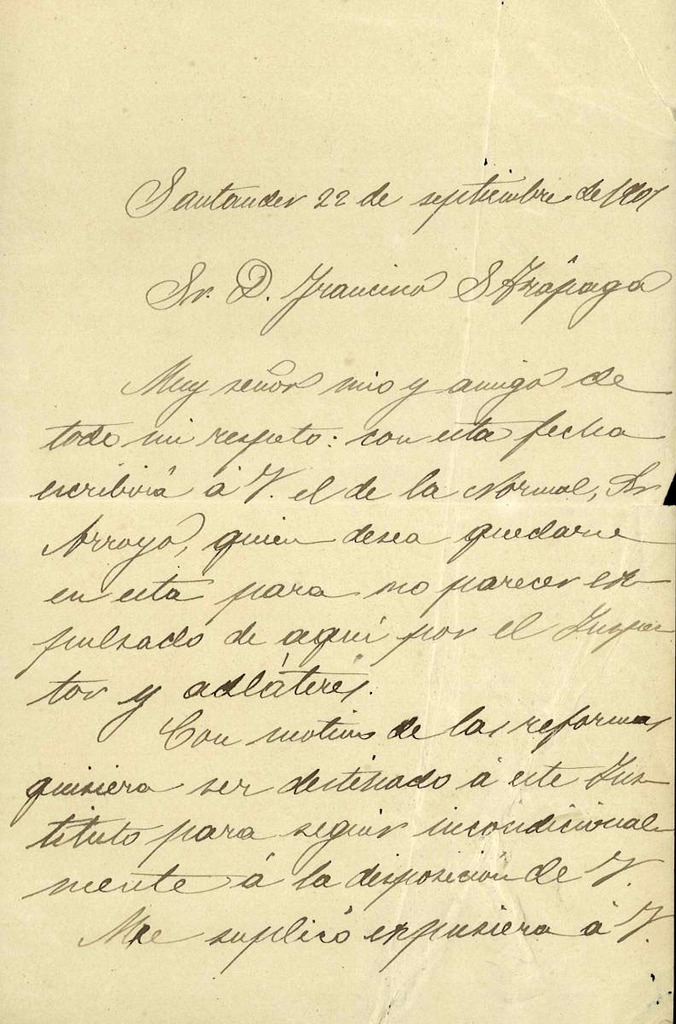 Santander 22 de septiembre de 1901
Sr. D. Francisco S Arápaga
Muy señor mio y amigo de
todo mi respeto: con esta fecha
escribirá á V. el de la Normal, Sr
Arroyo, quien desea quedarse
en esta para no parecer ex-
pulsado de aquí por el Inspec-
tor y adláteres.
Con motivo de las reformas
quisiera ser destinado á este Ins-
tituto para seguir incondicional-
mente á la disposición de V.
Me suplicó expusiera á V.